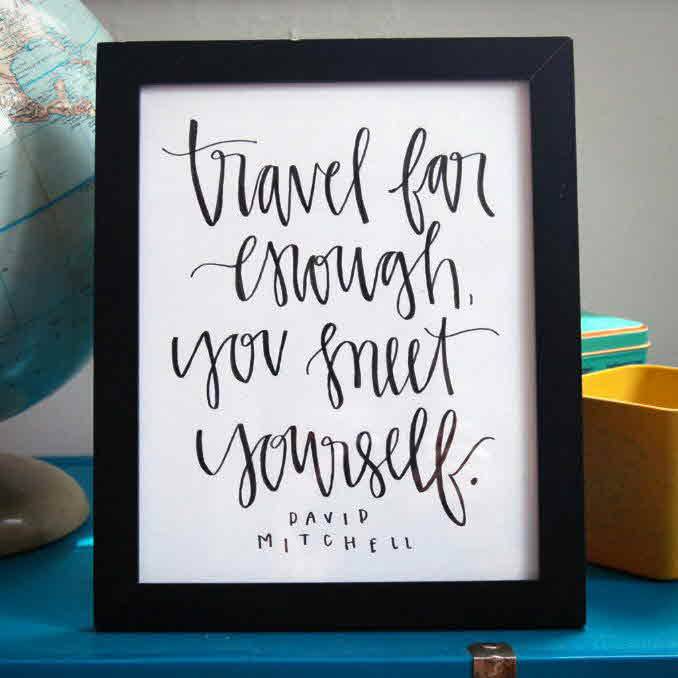 travel far
enough,
you meet
yourself.
DAVID
MITCHELL